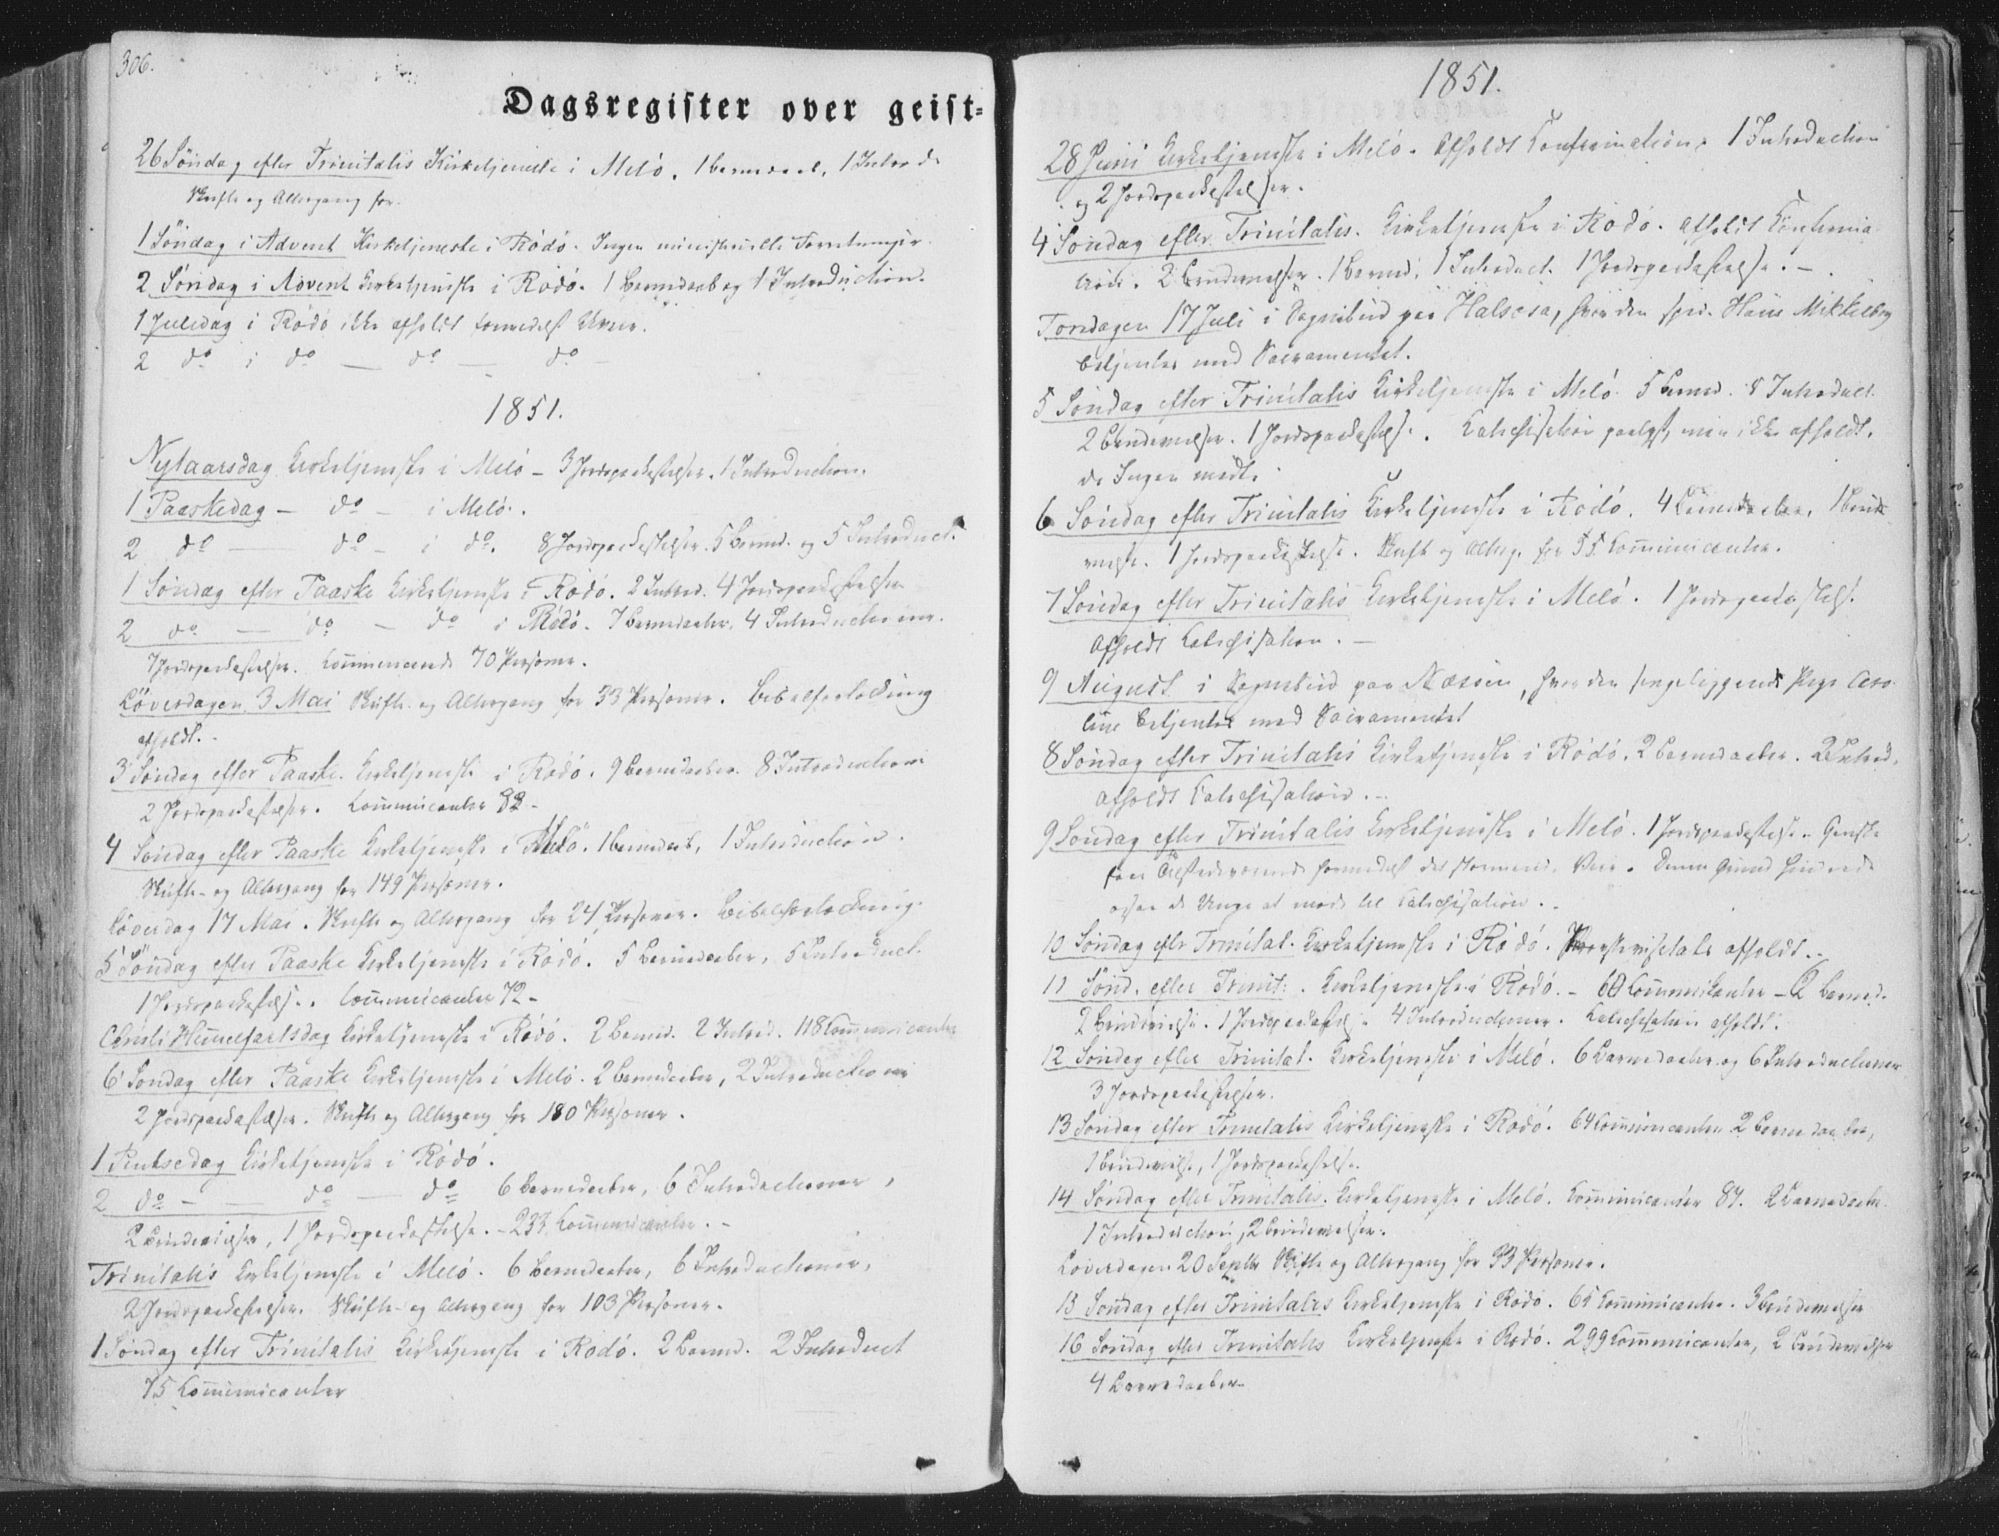 306.
Dagsregister over geist-
26 Söndag efter Trinitatis Kirketjeneste i Melö. 1 barnedaab, 1 Introd.
Skrifte og Altergang for
1 Söndag i Advent Kirketjeneste i Rödö. Ingen ministerielle Forretninger.
2 Söndag i Advent Kirketjeneste i Rödö. 1 Barnedaab og 1 Introduction.
1 Juledag i Rödö ikke afholdt formedelst Uveir.
2 do i do — do — do —
1851.
Nytaarsdag Kirketjeneste i Melö – 3 Jordspaakastelser. 1 Introduction.
1 Paaskedag – do – i Melö.
2 do — do – i do. 8 Jordspaakastelser. 5 Barned. og 5 Introduct.
1 Söndag efter Paaske Kirketjeneste i Rödö. 2 Introd. 4 Jordspaakastelser
2 do — do — do i Rödö. 7 Barnedaaber. 4 Introductioner.
7 Jordspaakastelser. Communicerende 70 Personer.
Löverdagen 3 Mai Skrifte- og Altergang for 33 Personer. Bibelforklaring
afholdt. -
3 Söndag efter Paaske. Kirketjeneste i Rödö. 9 barnedaaber. 8 Introductioner
2 Jordspaakastelser. Communicanter 92 -
4 Söndag efter Paaske Kirketjeneste i Melö. 1 barnedaab, 1 Introduction.
Skrifte- og Altergang for 149 Personer.
Löverdag 17 Mai. Skrifte og Altergang for 24 Personer. Bibelforklaring.
5 Söndag efter Paaske Kirketjeneste i Rödö. 5 Barnedaaber, 5 Introduct.
1 Jordspaakastelse. Communicanter 72 -
Christi Himmelfartsdag Kirketjeneste i Rödö. 2 Barned. 2 Introd. 118 Communicanter
6 Söndag efter Paaske Kirketjeneste i Melö. 2 barnedaaber, 2 Introductioner
2 Jordspaakastelser. Skrifte og Altergang for 180 Personer.
1 Pintsedag Kirketjeneste i Rödö.
2 do - — do — do 6 Barnedaaber, 6 Introductioner,
2 Brudevielser, 1 Jordspaakastelse. - 237 Communicanter. -
Trinitatis Kirketjeneste i Melö. 6 barnedaaber, 6 Introductioner,
2 Jordspaakastelser. Skrifte- og Altergang for 103 Personer.
1 Söndag efter Trinitatis Kirketjeneste i Rödö. 2 Barned. 2 Introduct
75 Communicanter
1851.
28 Juni Kirketjeneste i Melö. Afholdt Confirmation. 1 Introduction
og 2 Jordspaakastelser.
4 Söndag efter Trinitatis. Kirketjeneste i Rödö. Afholdt Confirma-
tion. 2 Brudevielser. 1 Barned. 1 Introduct. 1 Jordspaakastelse. -
Torsdagen 17 Juli i Sognebud paa Halsosa, hvor den Hans Mikkelsen
betjentes med Sacramentet.
5 Söndag efter Trinitatis Kirketjeneste i Melö. 5 Barned. 8 Introduct.
2 Brudevielser. 1 Jordspaakastelse. Catechisation paalyst, men ikke afholdt,
da Ingen mödte
6 Söndag efter Trinitatis Kirketjeneste i Rödö. 4 Barnedaaber, 1 Brude-
vielse. 1 Jordspaakastelse. Skrift og Alterg. for 55 Communicanter.
7 Söndag efter Trinitatis Kirketjeneste i Melö. 1 Jordspaakastelse.
Afholdt Catechisation. -
9 August i Sognebud paa Næssen, hvor den sengeliggende Pige
betjentes med Sacramentet
8 Söndag efter Trinitatis Kirketjeneste i Rödö. 2 Barnedaaber. 2 Introd.
Afholdt Catechisation. -
9 Söndag efter Trinitatis Kirketjeneste i Melö. 1 Jordspaakastelse. Ganske
faae Tilstedeværende formedelst det stormende Veir. Denne Grund hindrede
ogsaa de Unge at møde til Catechisation. -
10 Söndag eftr Trinitat. Kirketjeneste i Rödö. afholdt. -
11 Sönd. efter Trinit: . Kirketjeneste i Rödö. - 60 Communicanter - 2 Barned.
2 Brudevielse. 1 Jordspaakastelse. 4 Introductioner. Catechisation afholdt.
12 Söndag efter Trinitat. Kirketjeneste i Melö. 6 Barnedaaber og 6 Introductioner
3 Jordspaakastelser.
13 Söndag efter Trinitatis Kirketjeneste i Rödö. 64 Communicanter 2 Barnedaaber,
1 Brudevielse, 1 Jordspaakastelse.
14 Söndag efter Trinitatis. Kirketjeneste i Melö. Communicanter 87. 2 Barnedaaber.
1 Introduction, 2 Brudevielser.
Löverdagen 20 Septbr Skrifte og Altergang for 33 Personer.
15 Söndag efter Trinitatis Kirketjeneste i Rödö. 65 Communicanter. 3 Brudevielser
16 Söndag efter Trinitatis Kirketjeneste i Rödö. 299 Communicanter, 2 Brudevielser
4 Barnedaaber.